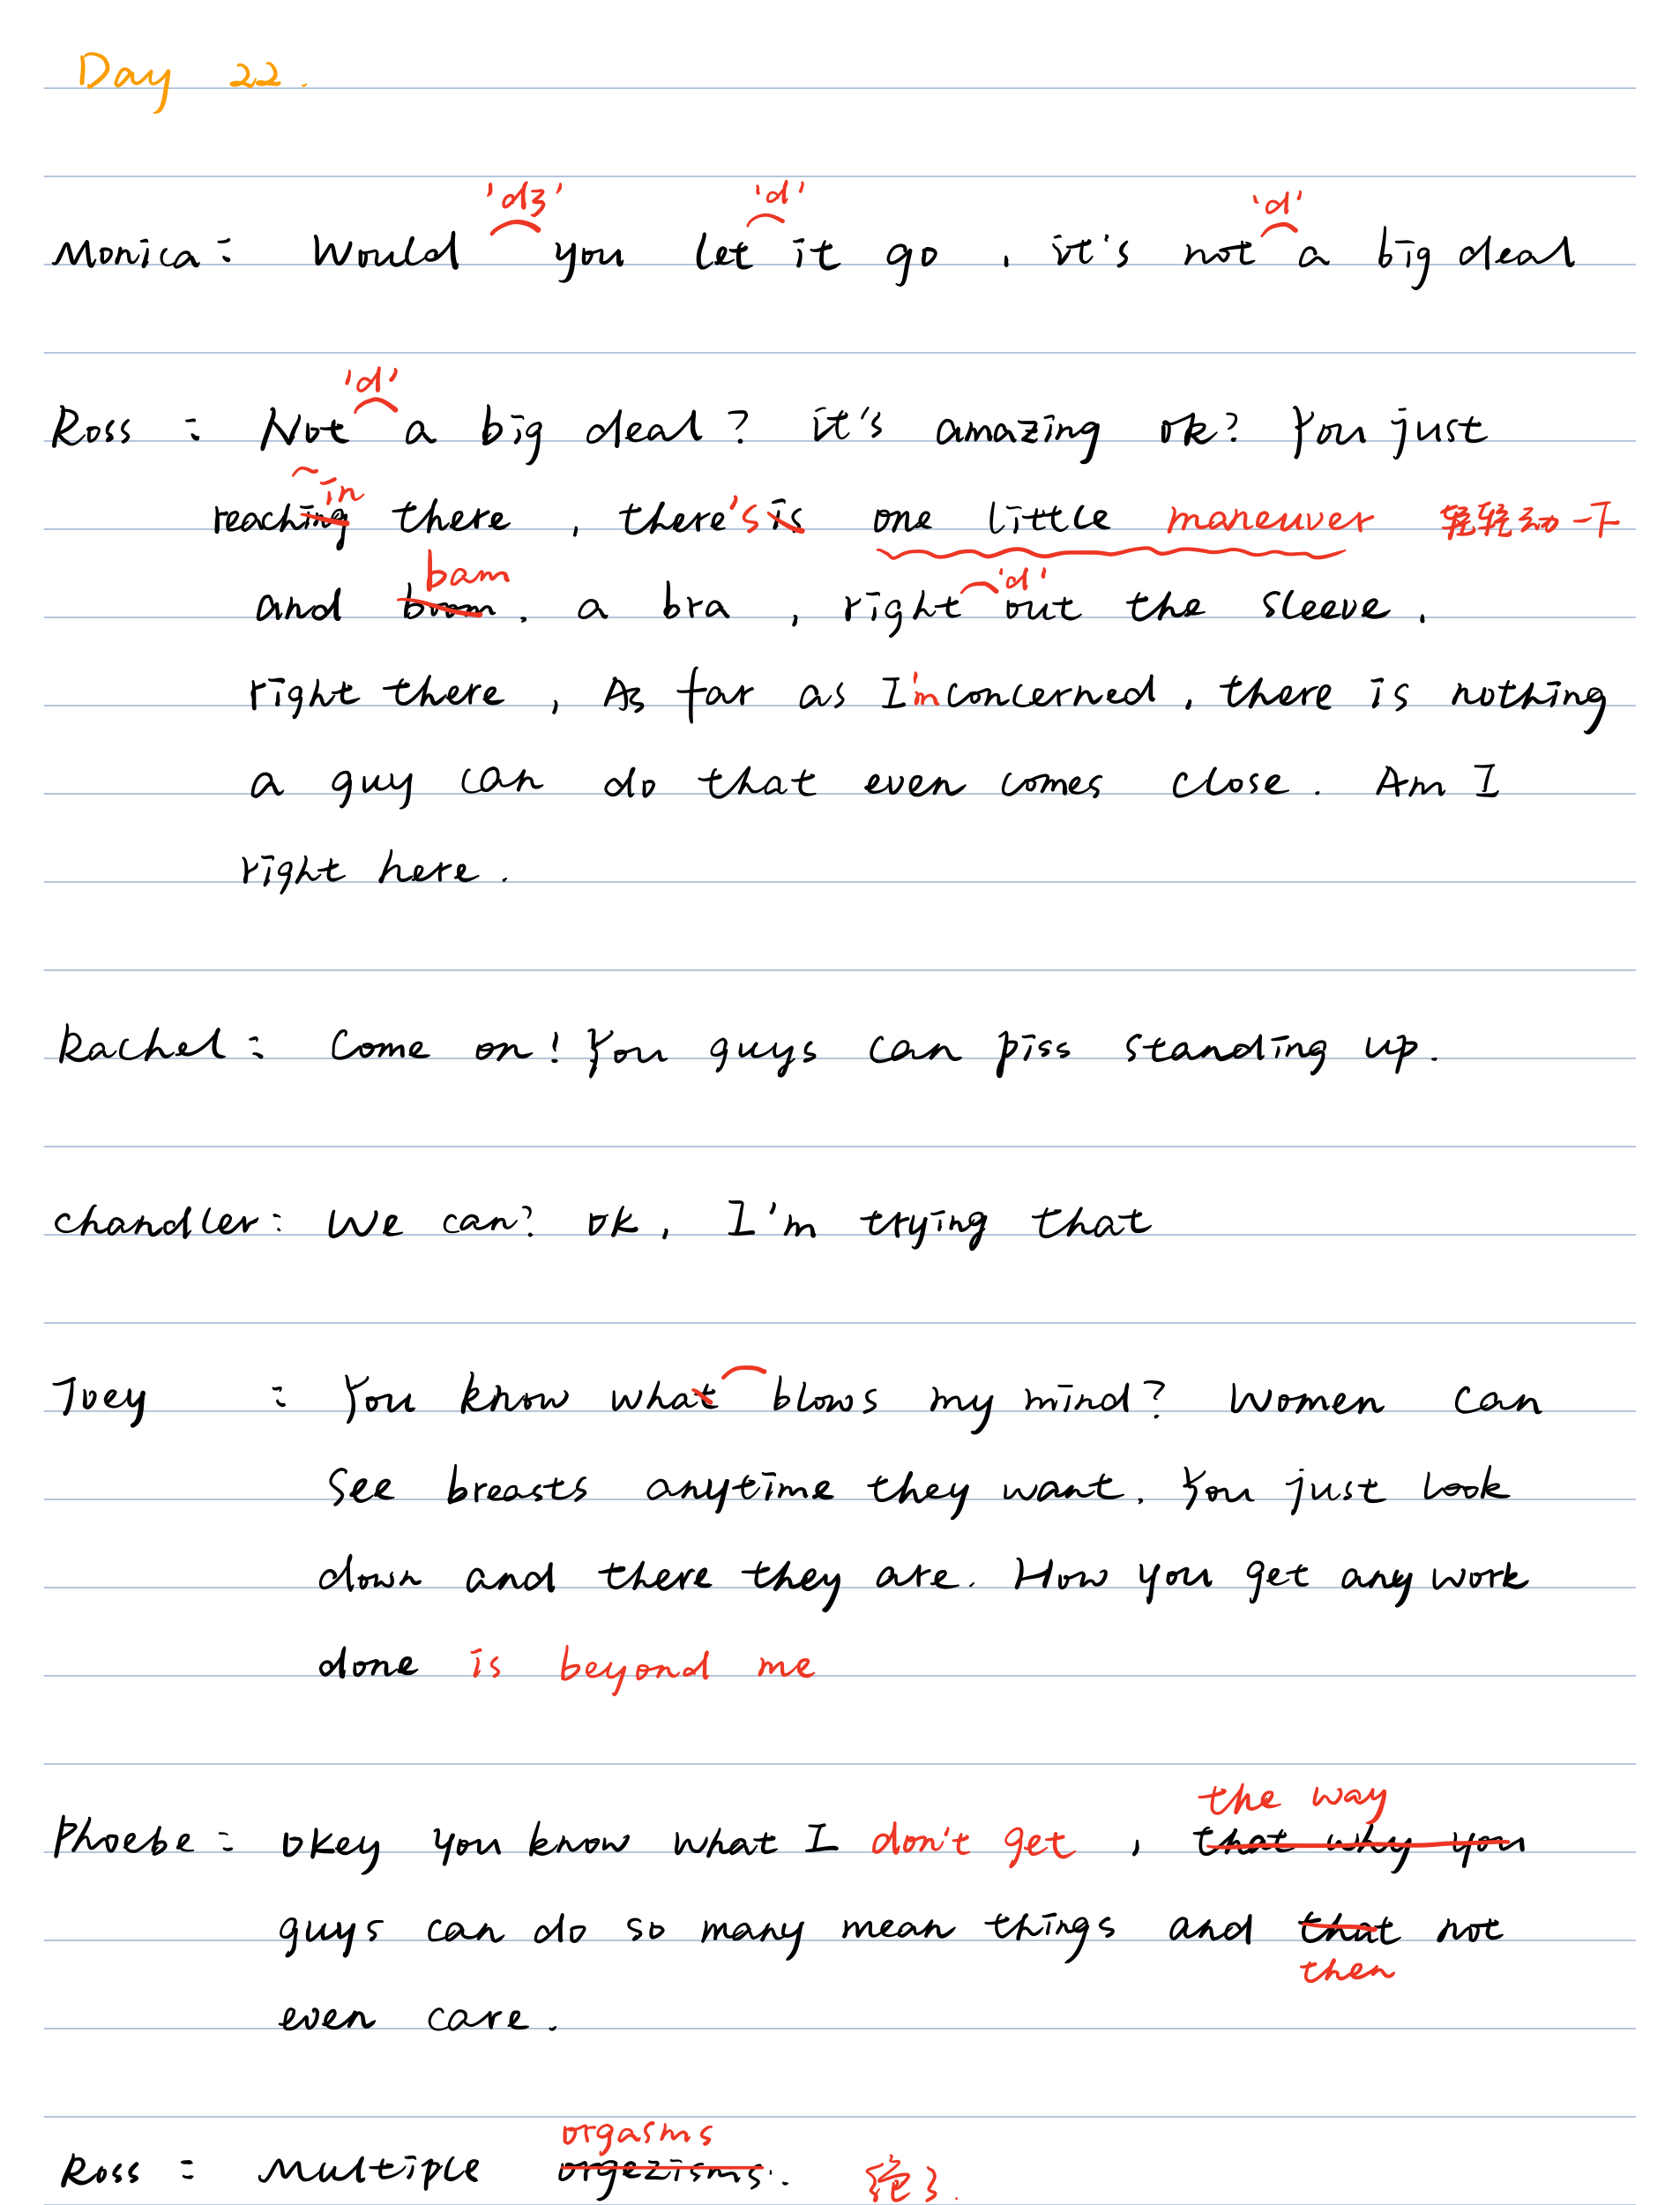 Day 22.
'dʒ' 'd' 'd'
Monica: Would you let it go, it's not a big deal
'd'
Ross: Not a big deal? it's amazing ok? You just
in
reaching there, there's is one little maneuver 轻轻动一下
bam 'd'
and boom. a bra, right out the sleeve.
right there, As far as I'm concerned, there is nothing
a guy can do that even comes close. Am I
right here.
Rachel: Come on! You guys can piss standing up.
Chandler: We can? ok, I'm trying that
Joey: You know what blows my mind? Women can
see breasts anytime they want. You just look
down and there they are. How you get any work
done is beyond me
the way
Phoebe: okey you know what I don't get, that why you
guys can do so many mean things and that not
then
even care.
orgasms
Ross: Multiple orgezisms. 绝了.